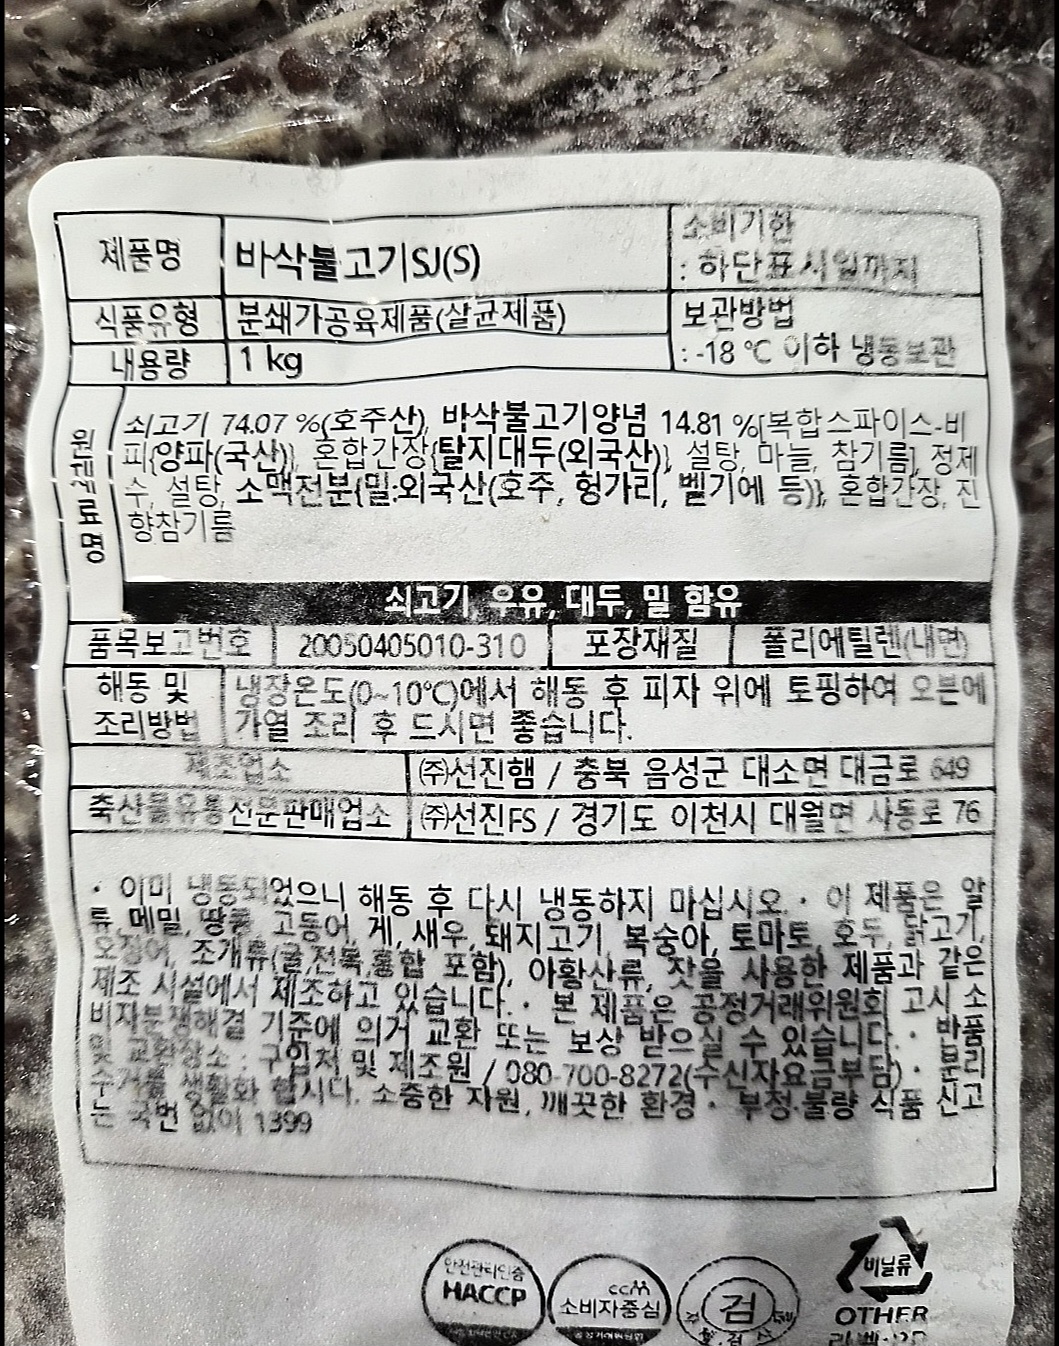 제품명 바삭불고기SJ(S) 소비기한
: 하단표시일까지
식품유형 분쇄가공육제품(살균제품) 보관방법
내용량 1 kg : -18 ℃ 이하 냉동보관
원재료명
쇠고기 74.07 %(호주산), 바삭불고기양념 14.81 %[복합스파이스-비
피{양파(국산)}, 혼합간장{탈지대두(외국산)}, 설탕, 마늘, 참기름], 정제
수, 설탕, 소맥전분{밀:외국산(호주, 헝가리, 벨기에 등)}, 혼합간장, 진
향참기름
쇠고기, 우유, 대두, 밀 함유
품목보고번호 20050405010-310 포장재질 폴리에틸렌(내면)
해동 및 냉장온도(0~10℃)에서 해동 후 피자 위에 토핑하여 오븐에
조리방법 가열 조리 후 드시면 좋습니다.
제조업소 ㈜선진햄 / 충북 음성군 대소면 대금로 649
축산물유통전문판매업소 ㈜선진FS / 경기도 이천시 대월면 사동로 76
· 이미 냉동되었으니 해동 후 다시 냉동하지 마십시오. · 이 제품은 알
류, 메밀, 땅콩, 고등어, 게, 새우, 돼지고기, 복숭아, 토마토, 호두, 닭고기,
오징어, 조개류(굴,전복,홍합 포함), 아황산류, 잣을 사용한 제품과 같은
제조 시설에서 제조하고 있습니다. · 본 제품은 공정거래위원회 고시 소
비자분쟁해결 기준에 의거 교환 또는 보상 받으실 수 있습니다. · 반품
및 교환장소 : 구입처 및 제조원 / 080-700-8272(수신자요금부담) · 분리
수거를 생활화 합시다. 소중한 자원, 깨끗한 환경 · 부정·불량 식품 신고
는 국번 없이 1399
안전관리인증
HACCP
ccm
소비자중심
검
비닐류
OTHER